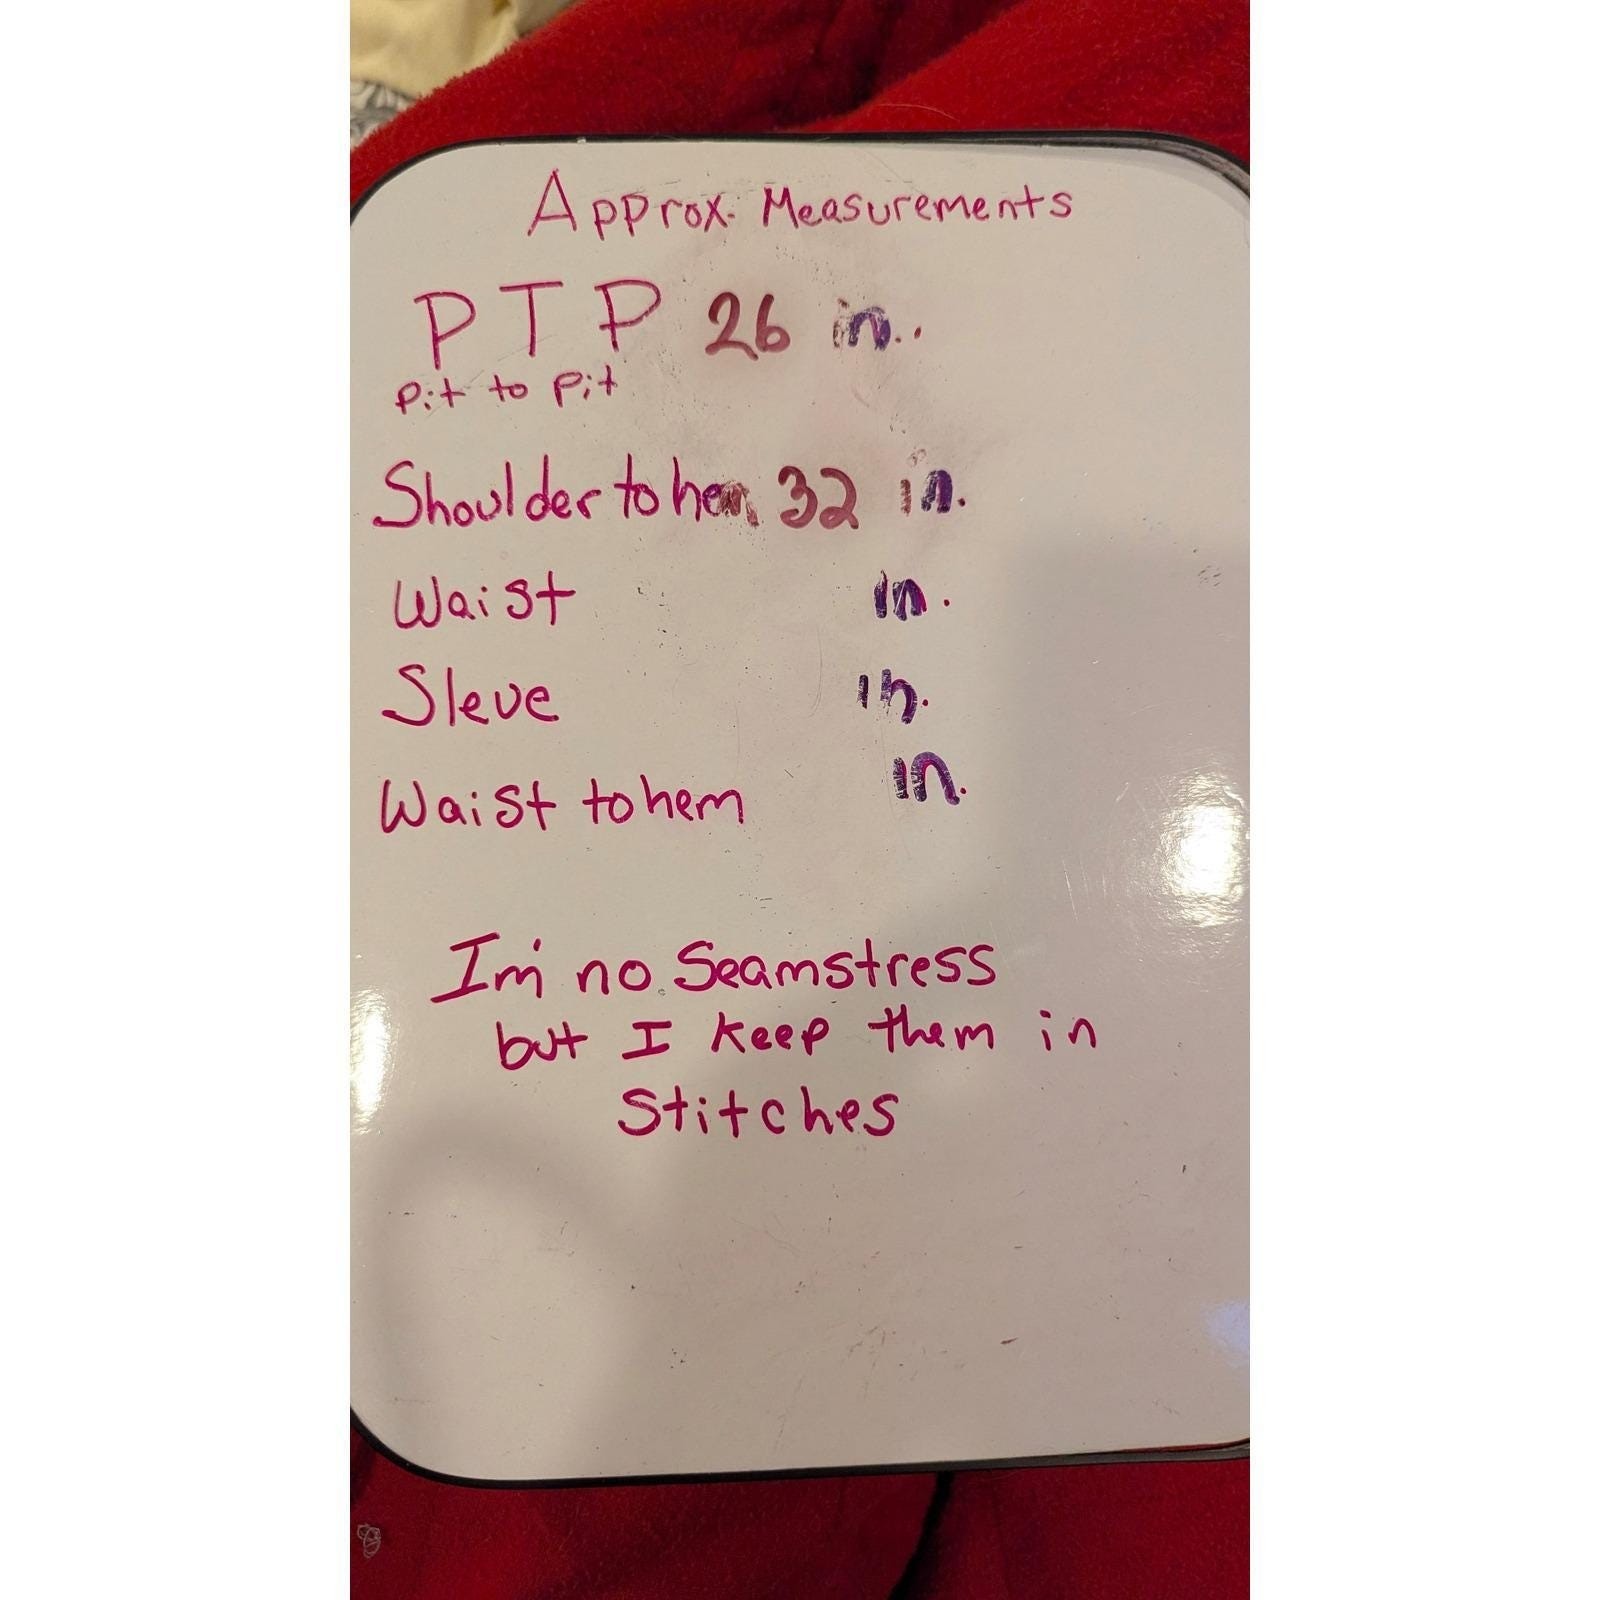 Approx. Measurements
PTP 26 in.
pit to pit
Shoulder to hem 32 in.
Waist in.
Sleve in.
Waist to hem in.
Im no Seamstress
but I keep them in
Stitches